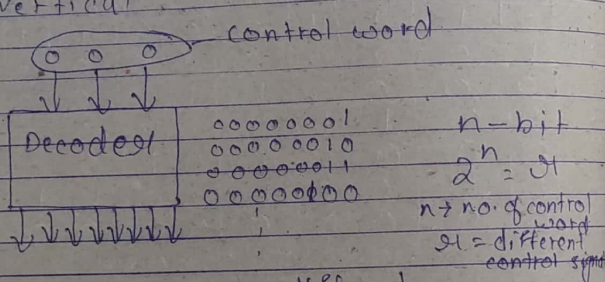 Vertical
control word
0 0 0
Decoder
00000001
00000010
00000011
00000100
n-bit
2^n = r
n → no. of control
word
r = different
control sign